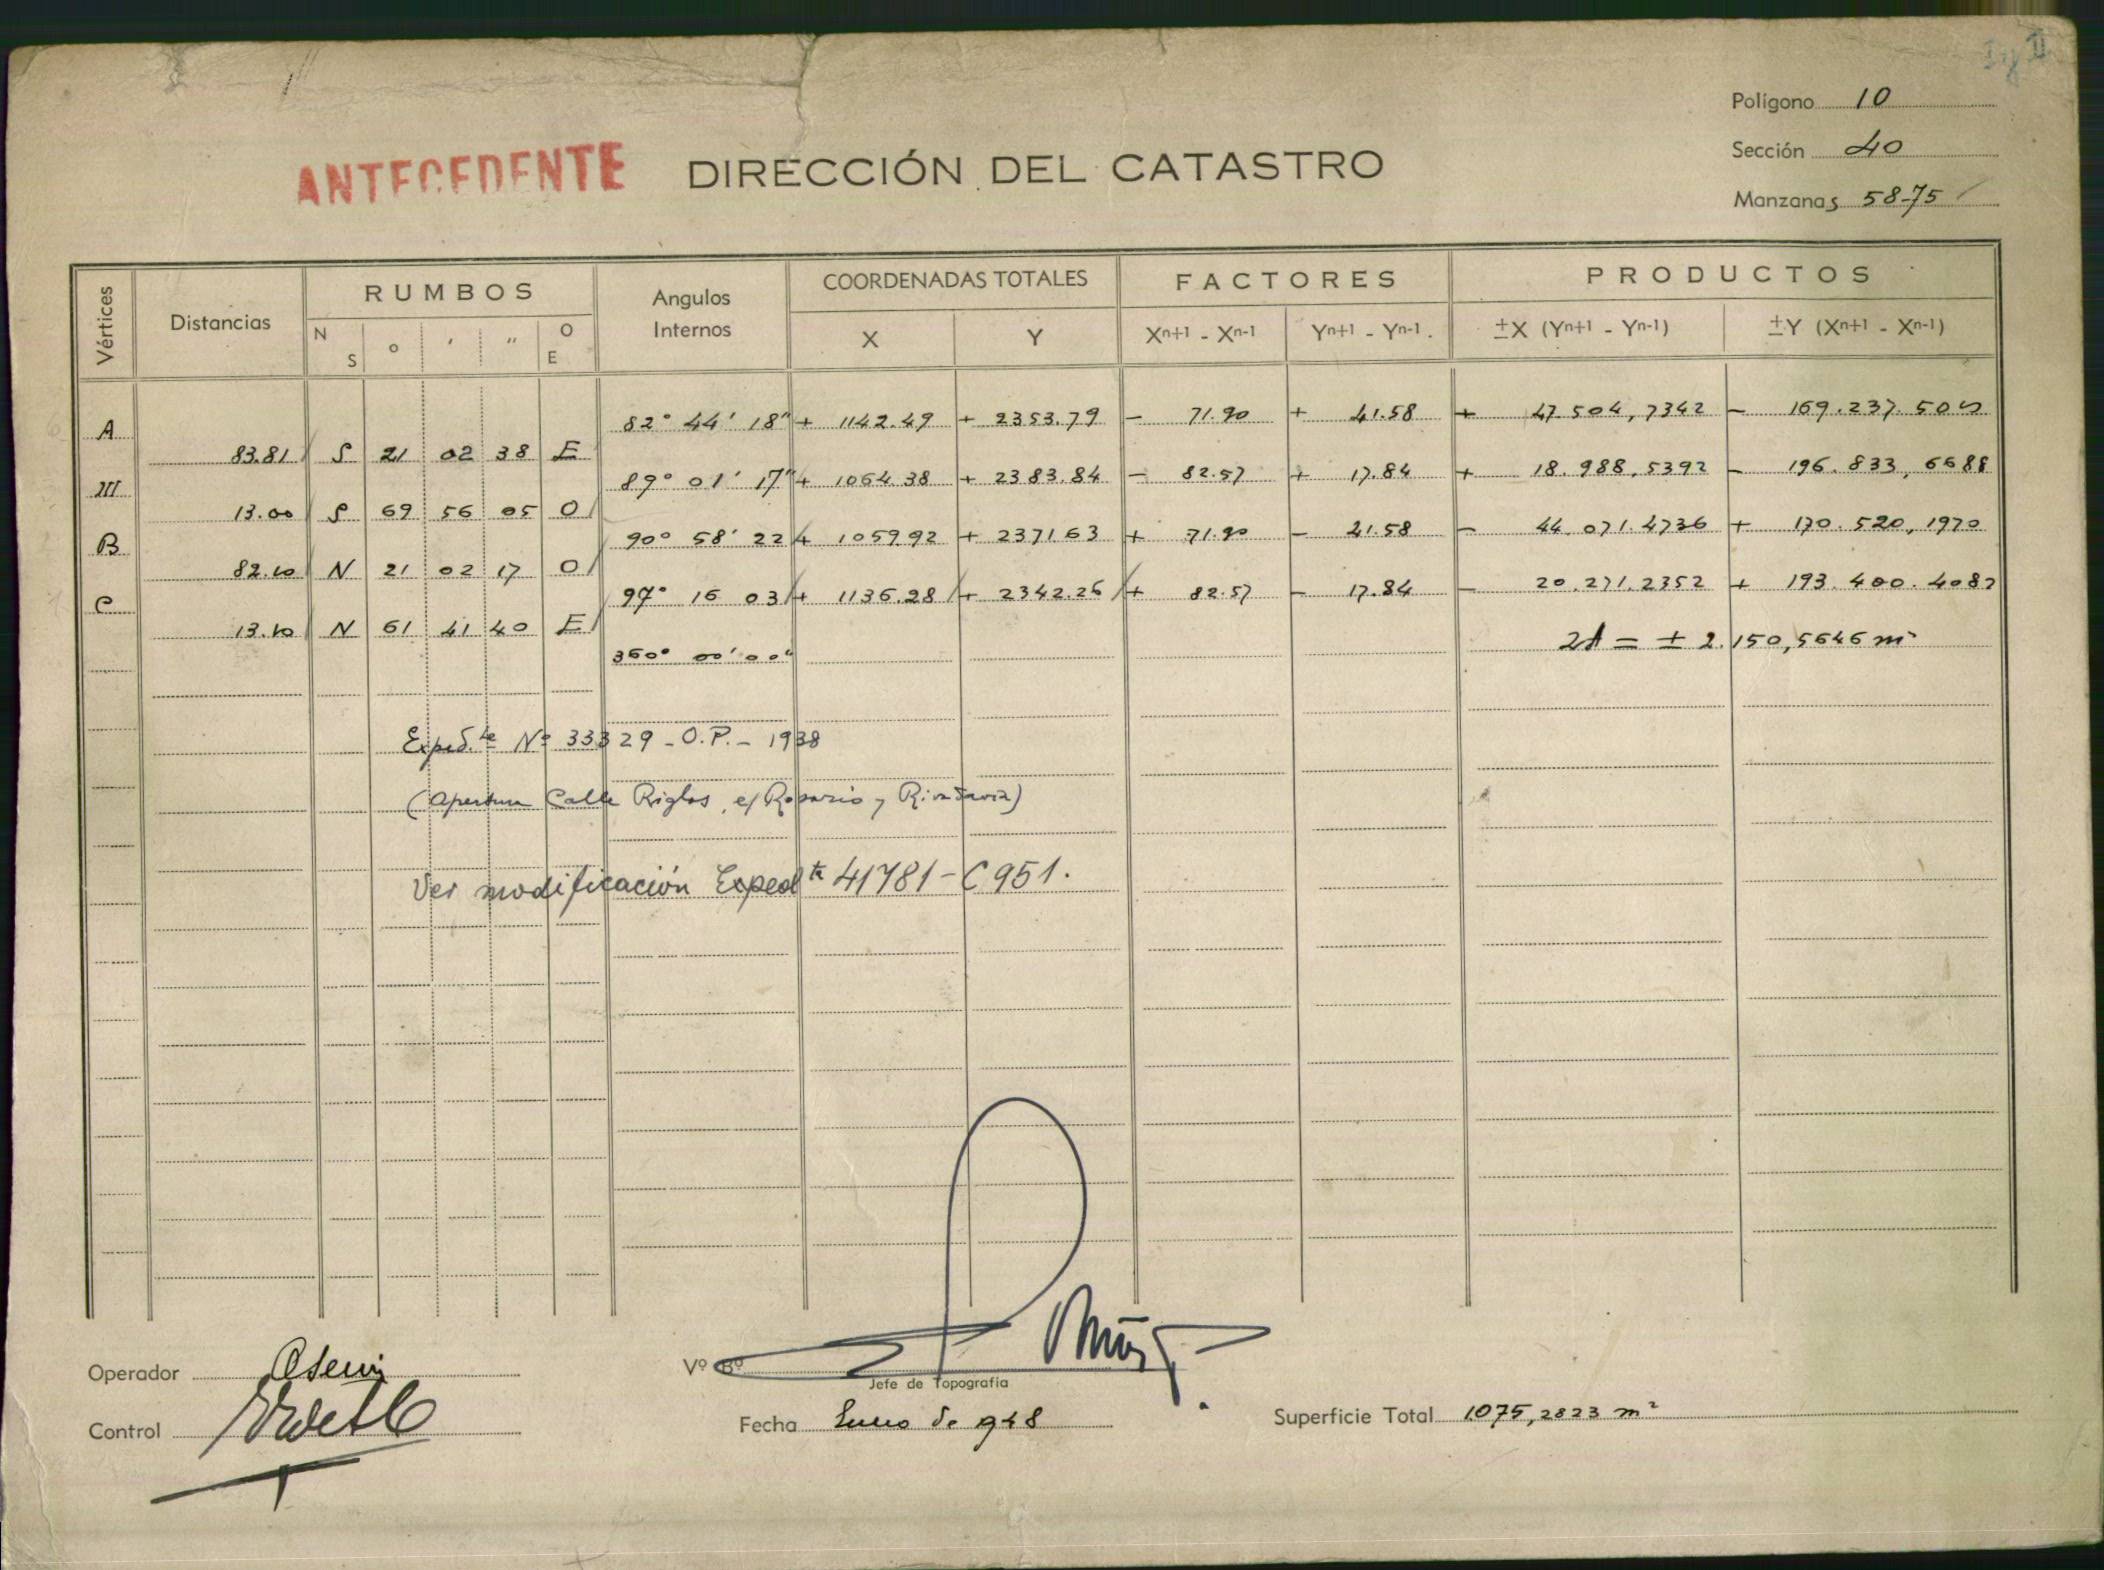 I y II
Polígono 10
ANTECEDENTE DIRECCIÓN DEL CATASTRO
Sección 40
Manzanas 58-75
Vértices Distancias RUMBOS Angulos Internos COORDENADAS TOTALES FACTORES PRODUCTOS
N S ° ' " O E X Y Xn+1 - Xn-1 Yn+1 - Yn-1. ±X (Yn+1 - Yn-1) ±Y (Xn+1 - Xn-1)
A 82° 44' 18" + 1142.49 + 2353.79 - 71.90 + 41.58 + 47504,7342 - 169.237.5010
83.81 S 21 02 38 E
III 89° 01' 17" + 1064.38 + 2383.84 - 82.57 + 17.84 + 18.988,5392 - 196.833,6688
13.00 S 69 56 05 O
B 90° 58' 22 + 1059.92 + 2371.63 + 71.90 - 41.58 - 44.071.4736 + 170.520,1970
82.10 N 21 02 17 O
C 97° 16 03 + 1136.28 + 2342.26 + 82.57 - 17.84 - 20.271.2352 + 193.400.4082
13.10 N 61 41 40 E
360° 00' 00" 2A = ± 2.150,5646 m²
Exped.te Nº 33329 - O.P. - 1938
(Apertura Calle Riglos, e/ Rosario y Rivadavia)
Ver modificación Exped te 41781 - C 951.
Operador
Vº Bº
Jefe de Topografía
Control
Fecha Enero de 948
Superficie Total 1075,2823 m²